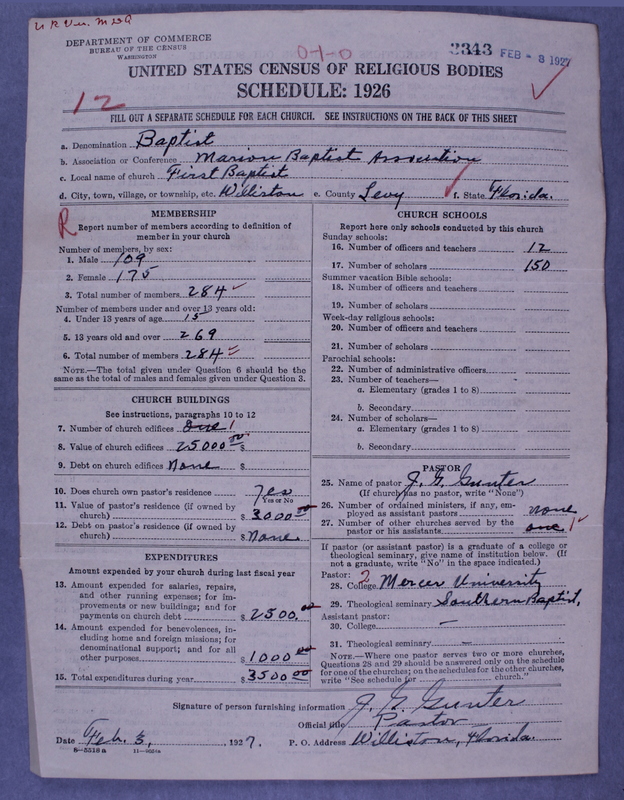 DEPARTMENT OF COMMERCE
BUREAU OF THE CENSUS
WASHINGTON
0-1-0
3343 FEB - 3 1927
UNITED STATES CENSUS OF RELIGIOUS BODIES
SCHEDULE: 1926
12
FILL OUT A SEPARATE SCHEDULE FOR EACH CHURCH. SEE INSTRUCTIONS ON THE BACK OF THIS SHEET
a. Denomination Baptist
b. Association or Conference Marion Baptist Association
c. Local name of church First Baptist
d. City, town, village, or township, etc. Williston e. County Levy f. State Florida.
R
MEMBERSHIP
Report number of members according to definition of
member in your church
Number of members, by sex:
1. Male 109
2. Female 175
3. Total number of members 284
Number of members under and over 13 years old:
4. Under 13 years of age 15
5. 13 years old and over 269
6. Total number of members 284
NOTE.—The total given under Question 6 should be
the same as the total of males and females given under Question 3.
CHURCH BUILDINGS
See instructions, paragraphs 10 to 12
7. Number of church edifices one 1
8. Value of church edifices 25000.00 $
9. Debt on church edifices None $
10. Does church own pastor's residence Yes
Yes or No
11. Value of pastor's residence (if owned by
church) $ 3000.00
12. Debt on pastor's residence (if owned by
church) $ None
EXPENDITURES
Amount expended by your church during last fiscal year
13. Amount expended for salaries, repairs,
and other running expenses; for im-
provements or new buildings; and for
payments on church debt $ 2500.
14. Amount expended for benevolences, in-
cluding home and foreign missions; for
denominational support; and for all
other purposes $ 1000.00
15. Total expenditures during year $ 3500.00
CHURCH SCHOOLS
Report here only schools conducted by this church
Sunday schools:
16. Number of officers and teachers 12
17. Number of scholars 150
Summer vacation Bible schools:
18. Number of officers and teachers
19. Number of scholars
Week-day religious schools:
20. Number of officers and teachers
21. Number of scholars
Parochial schools:
22. Number of administrative officers
23. Number of teachers—
a. Elementary (grades 1 to 8)
b. Secondary
24. Number of scholars—
a. Elementary (grades 1 to 8)
b. Secondary
PASTOR
25. Name of pastor J. G. Gunter
(If church has no pastor, write "None")
26. Number of ordained ministers, if any, em-
ployed as assistant pastors none
27. Number of other churches served by the
pastor or his assistants one 1
If pastor (or assistant pastor) is a graduate of a college or
theological seminary, give name of institution below. (If
not a graduate, write "No" in the space indicated.)
Pastor:
28. College Mercer University
29. Theological seminary Southern Baptist,
Assistant pastor:
30. College —
31. Theological seminary —
NOTE.—Where one pastor serves two or more churches,
Questions 28 and 29 should be answered only on the schedule
for one of the churches; on the schedules for the other churches,
write "See schedule for church."
Signature of person furnishing information J. G. Gunter
Official title Pastor
Date Feb. 3, 1927. P. O. Address Williston, Florida.
8-5518 a